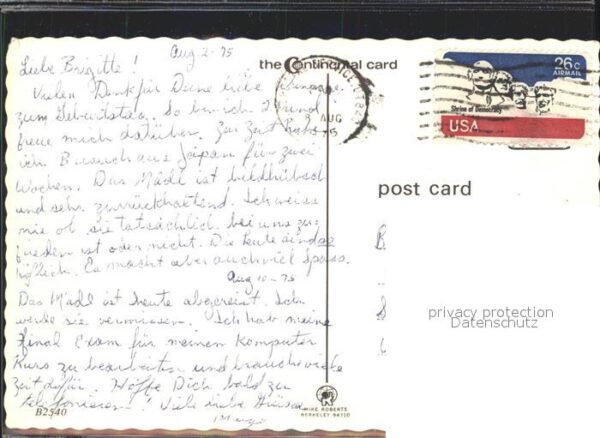 Aug 2-75
Liebe Brigitte!
Vielen Dank für Deine liebe
zum Geburtstag. So bin ich 28 und
freue mich darüber. Zur Zeit habe
ich Besuch aus Japan für zwei
Wochen. Das Mädl ist bildhübsch
und sehr zurückhaltend. Ich weiss
nie ob sie tatsächlich bei uns zu-
frieden ist oder nicht. Die Leute sind so
höflich. Es macht aber auch viel Spass.
Aug 10-75
Das Mädl ist heute abgereist. Ich
werde sie vermissen. Ich hab meine
final Exam für meinen Komputer
Kurs zu bearbeiten und brauche viele
Zeit dafür. Hoffe Dich bald zu
telefonieren! Viele liebe Grüsse
B2540
the Continental card
AUG
75
26c
AIRMAIL
Shrine of Democracy
USA
post card
privacy protection
Datenschutz
MIKE ROBERTS
BERKELEY 94710